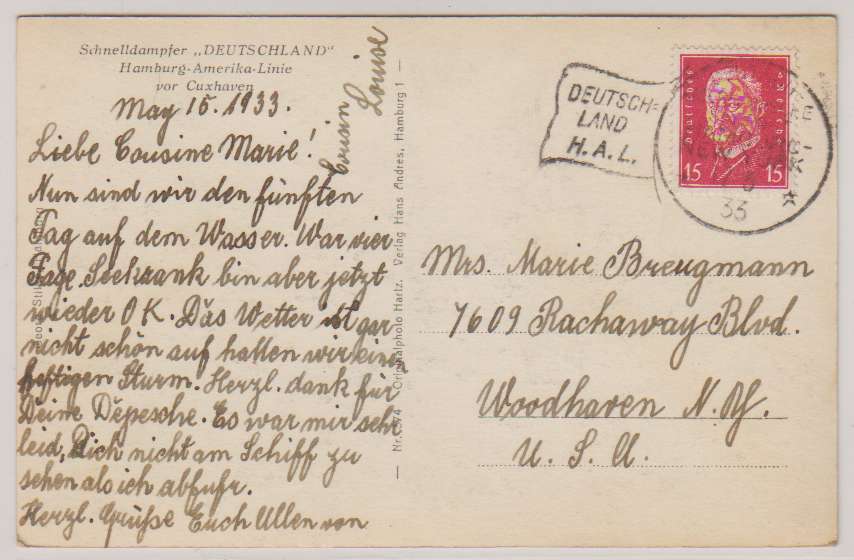 Schnelldampfer „DEUTSCHLAND“
Hamburg-Amerika-Linie
vor Cuxhaven
May 15. 1933.
Liebe Cousine Marie!
Nun sind wir den fünften
Tag auf dem Wasser. War vier
Tage Seekrank bin aber jetzt
wieder OK. Das Wetter ist gar
nicht schön auf hatten wir einen
heftigen Sturm. Herzl. dank für
Deine Depesche. Es war mir sehr
leid, Dich nicht am Schiff zu
sehen als ich abfuhr.
Herzl. Grüße Euch Allen von
Cousin
Louise
Originalphoto Hartz. Verlag Hans Andres, Hamburg 1 —
DEUTSCH=
LAND
H.A.L.
33
Deutsches
Reich
15 15
Mrs. Marie Breugmann
7609 Rachaway Blvd.
Woodhaven N.Y.
U. S. A.